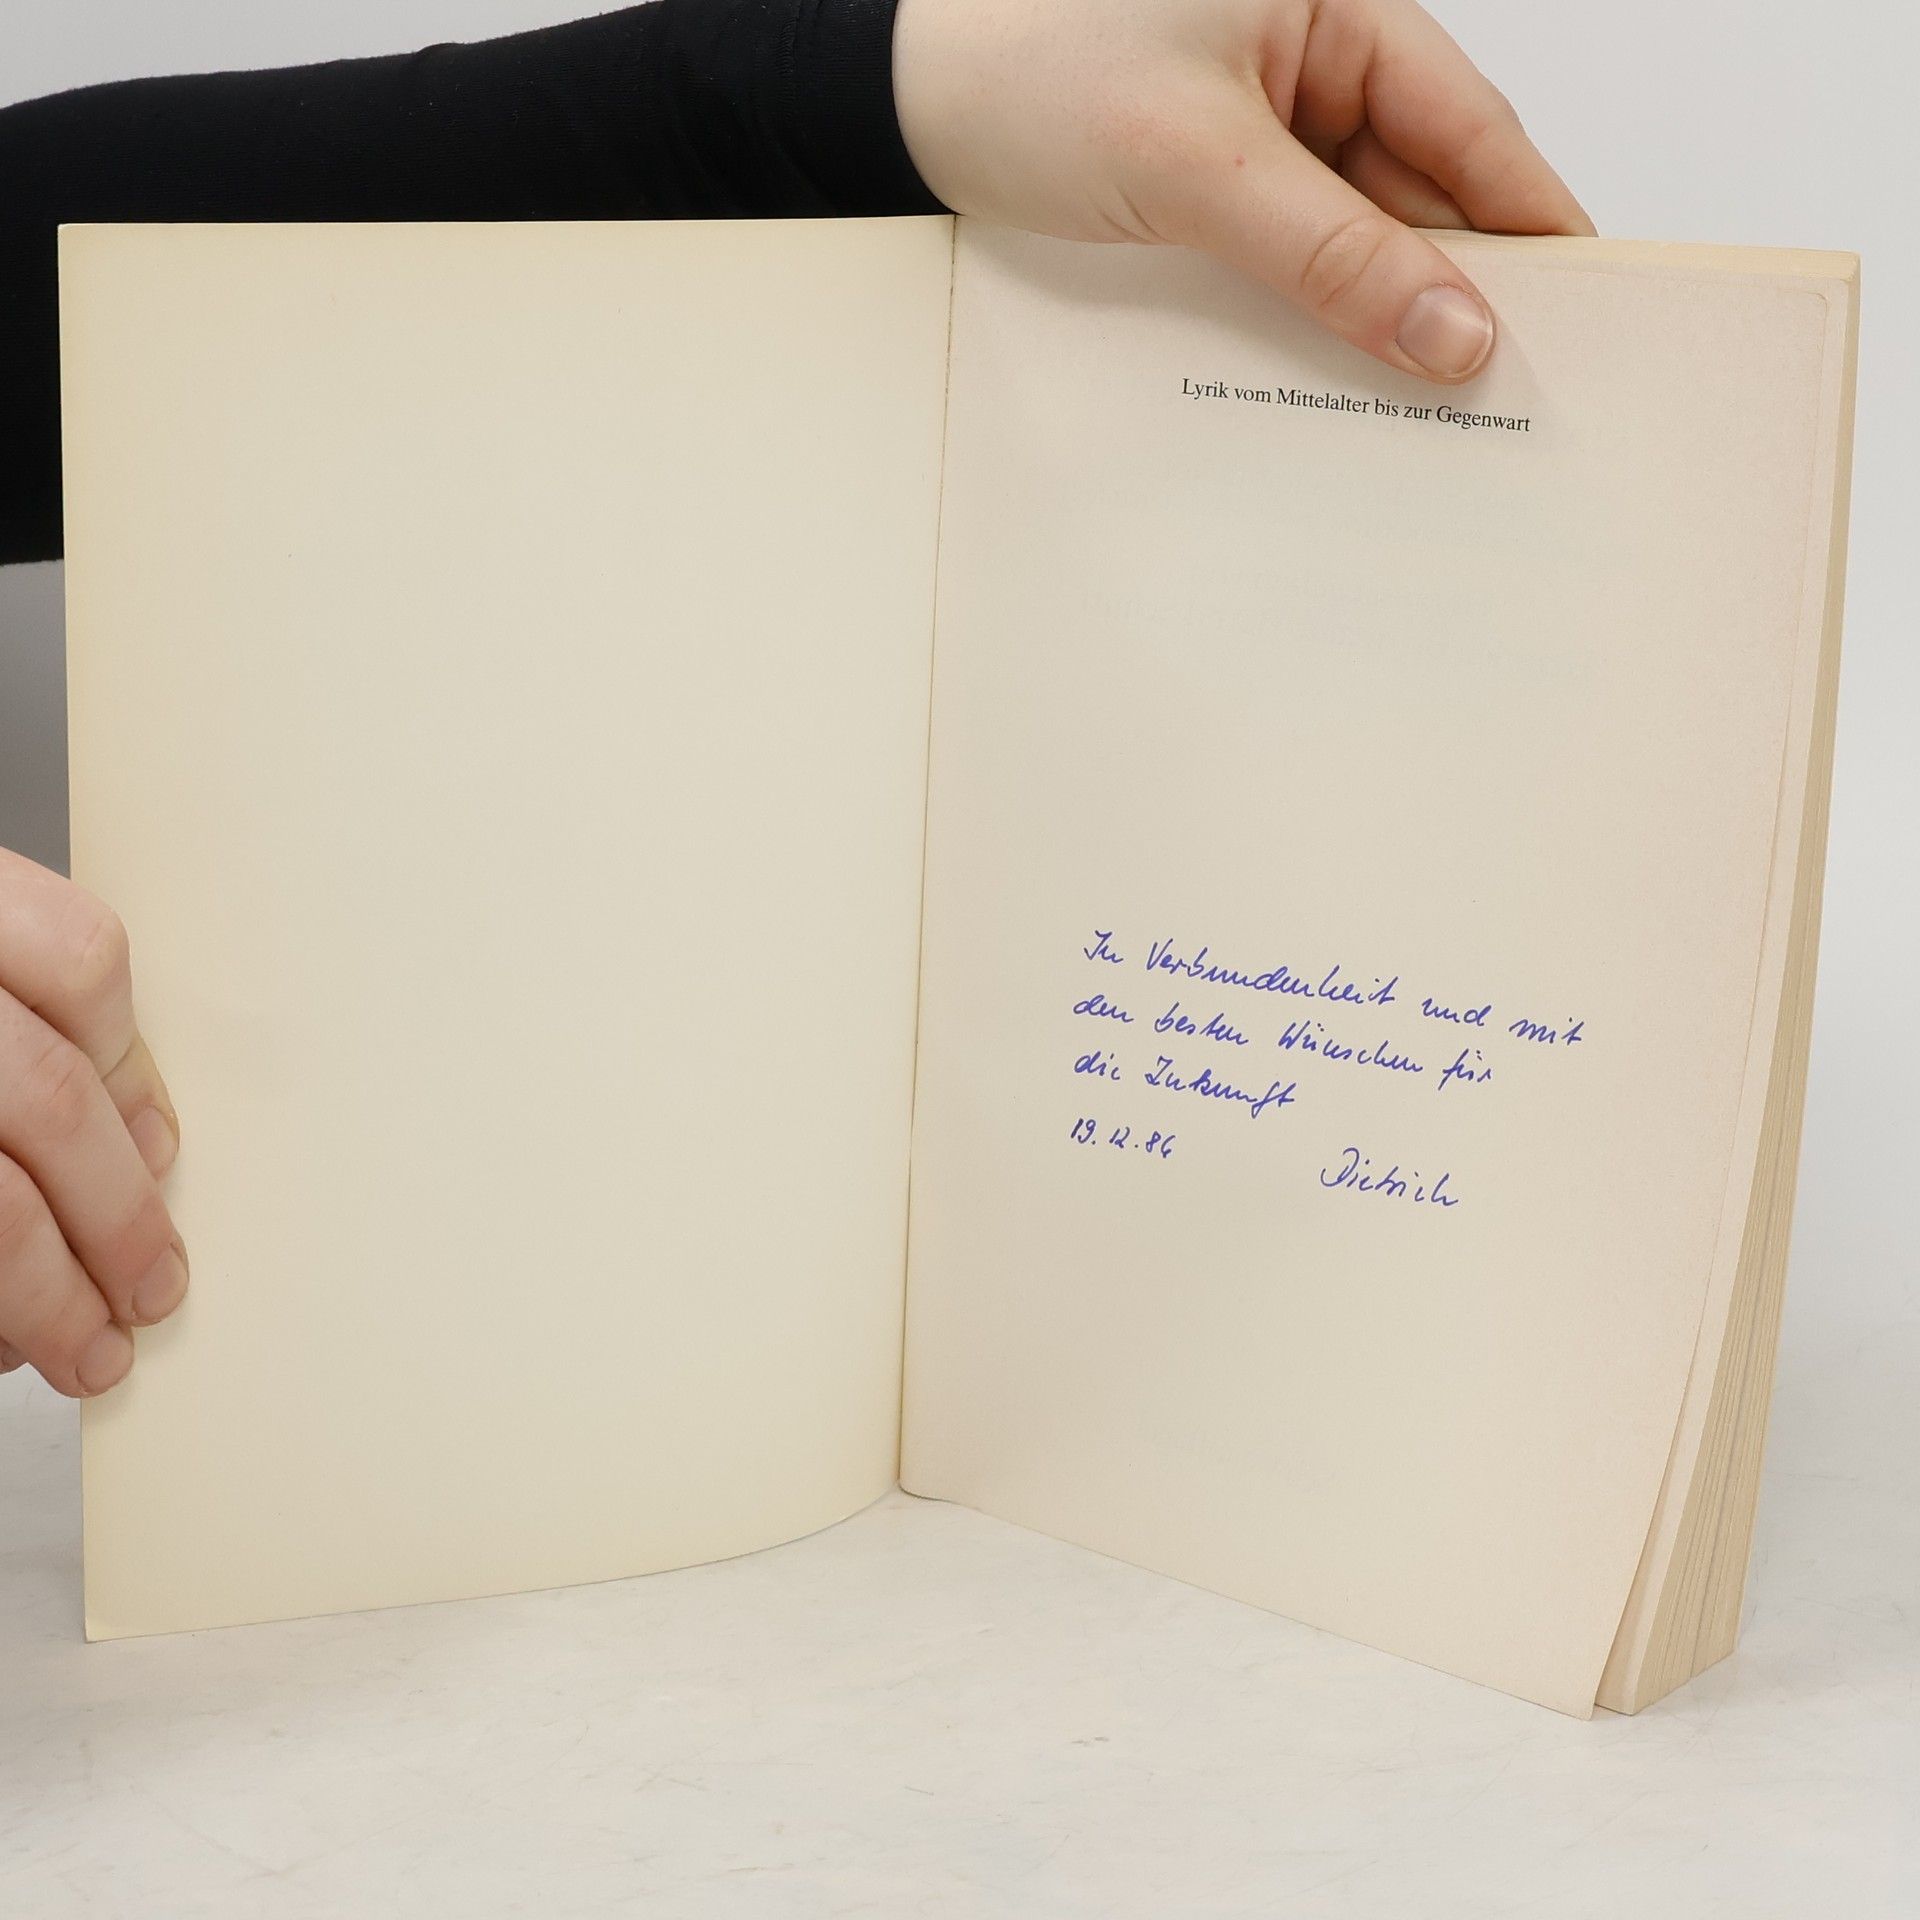 Lyrik vom Mittelalter bis zur Gegenwart
In Verbundenheit und mit
den besten Wünschen für
die Zukunft
19.12.86
Dietrich